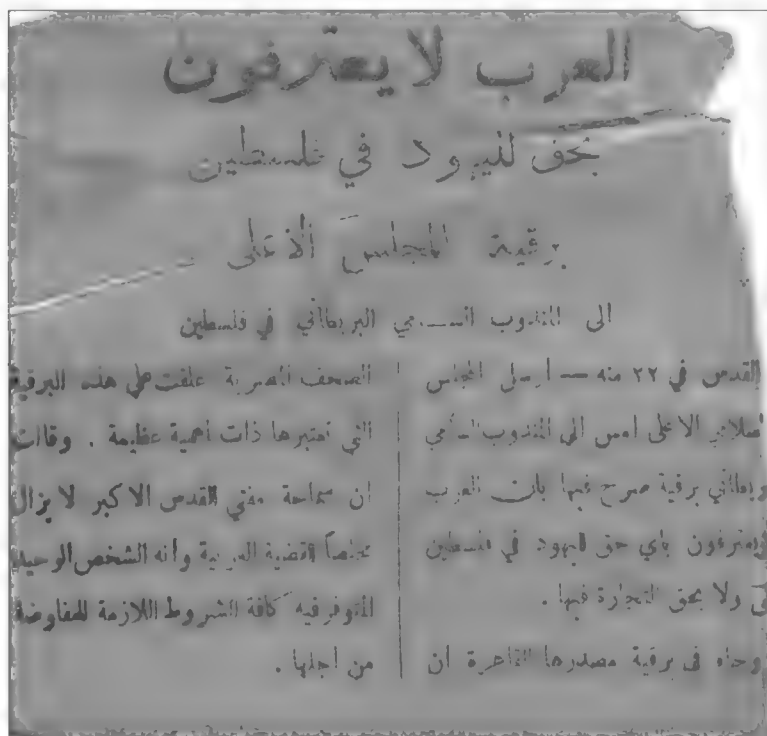 العرب لا يعترفون
بحق لليهود في فلسطين
برقية المجلس الأعلى
الى المندوب السامي البريطاني في فلسطين
القدس في ٢٢ منه — ارسل المجلس
اسلامي الاعلى امس الى المندوب السامي
ريطاني برقية صرح فيها بان العرب
يعترفون بأي حق لليهود في فلسطين
ولا بحق التجارة فيها .
وجاء في برقية مصدرها القاهرة ان
الصحف المصرية علقت على هذه البرقية
التي تعتبرها ذات اهمية عظيمة . وقالت
ان سماحة مفتي القدس الاكبر لا يزال
مخلصاً للقضية العربية وانه الشخص الوحيد
المتوفر فيه كافة الشروط اللازمة للمفاوضة
من اجلها .